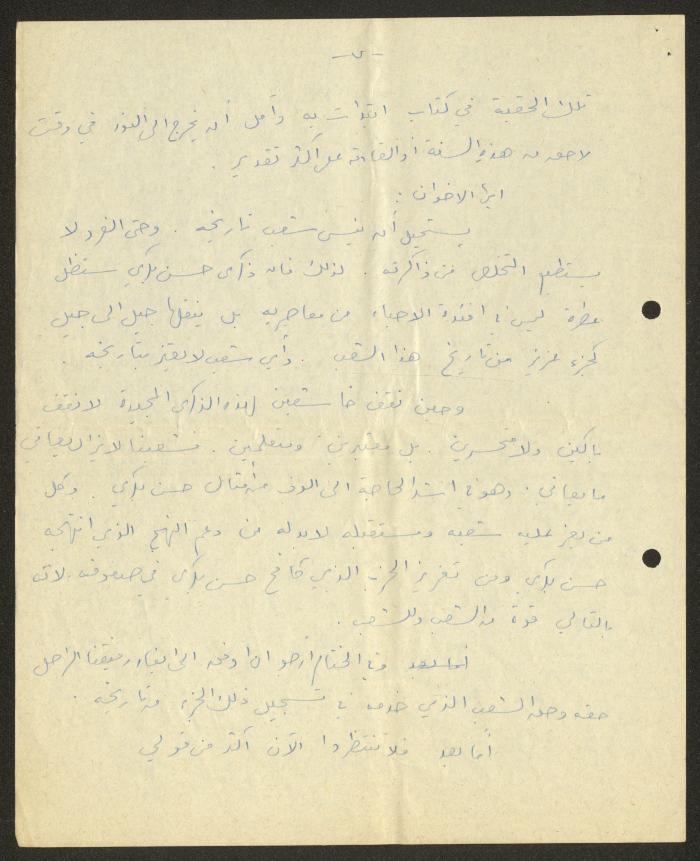 -٧-
تلك الحقبة في كتاب ابتدأت به وآمل أن يخرج الى النور في وقت
لاحق من هذه السنة أو القادمة على أكثر تقدير .
ايها الاخوان :
يستحيل أن ينسى شعب تاريخه . وحتى الفرد لا
يستطيع التخلص من ذاكرته . لذلك فان ذكرى حسن بكري ستظل
عطرة ليس في افئدة الاحباء من معاصريه بل ينقلها جيل الى جيل
كجزء عزيز من تاريخ هذا الشعب . وأي شعب لا يعتز بتاريخه .
وحين نقف خاشعين لهذه الذكرى المجيدة لا نقف
باكين ولا متحسرين . بل معتبرين ومتعلمين . فشعبنا لا يزال يعاني
ما يعاني . وهو في اشد الحاجة الى الوف من أمثال حسن بكري . وكل
من يعز عليه شعبه ومستقبله لا بد له من دعم النهج الذي انتهجه
حسن بكري ومن تعزيز الحزب الذي كافح حسن بكري في صفوفه لانه
بالتالي قوة من الشعب وللشعب .
وفي الختام أرجو ان اوفق الى ايفاء رفيقنا الراحل
حقه وحق الشعب الذي خدمه في تسجيل ذلك الجزء من تاريخه .
أما بعد فلا تنتظروا الآن أكثر من قولي